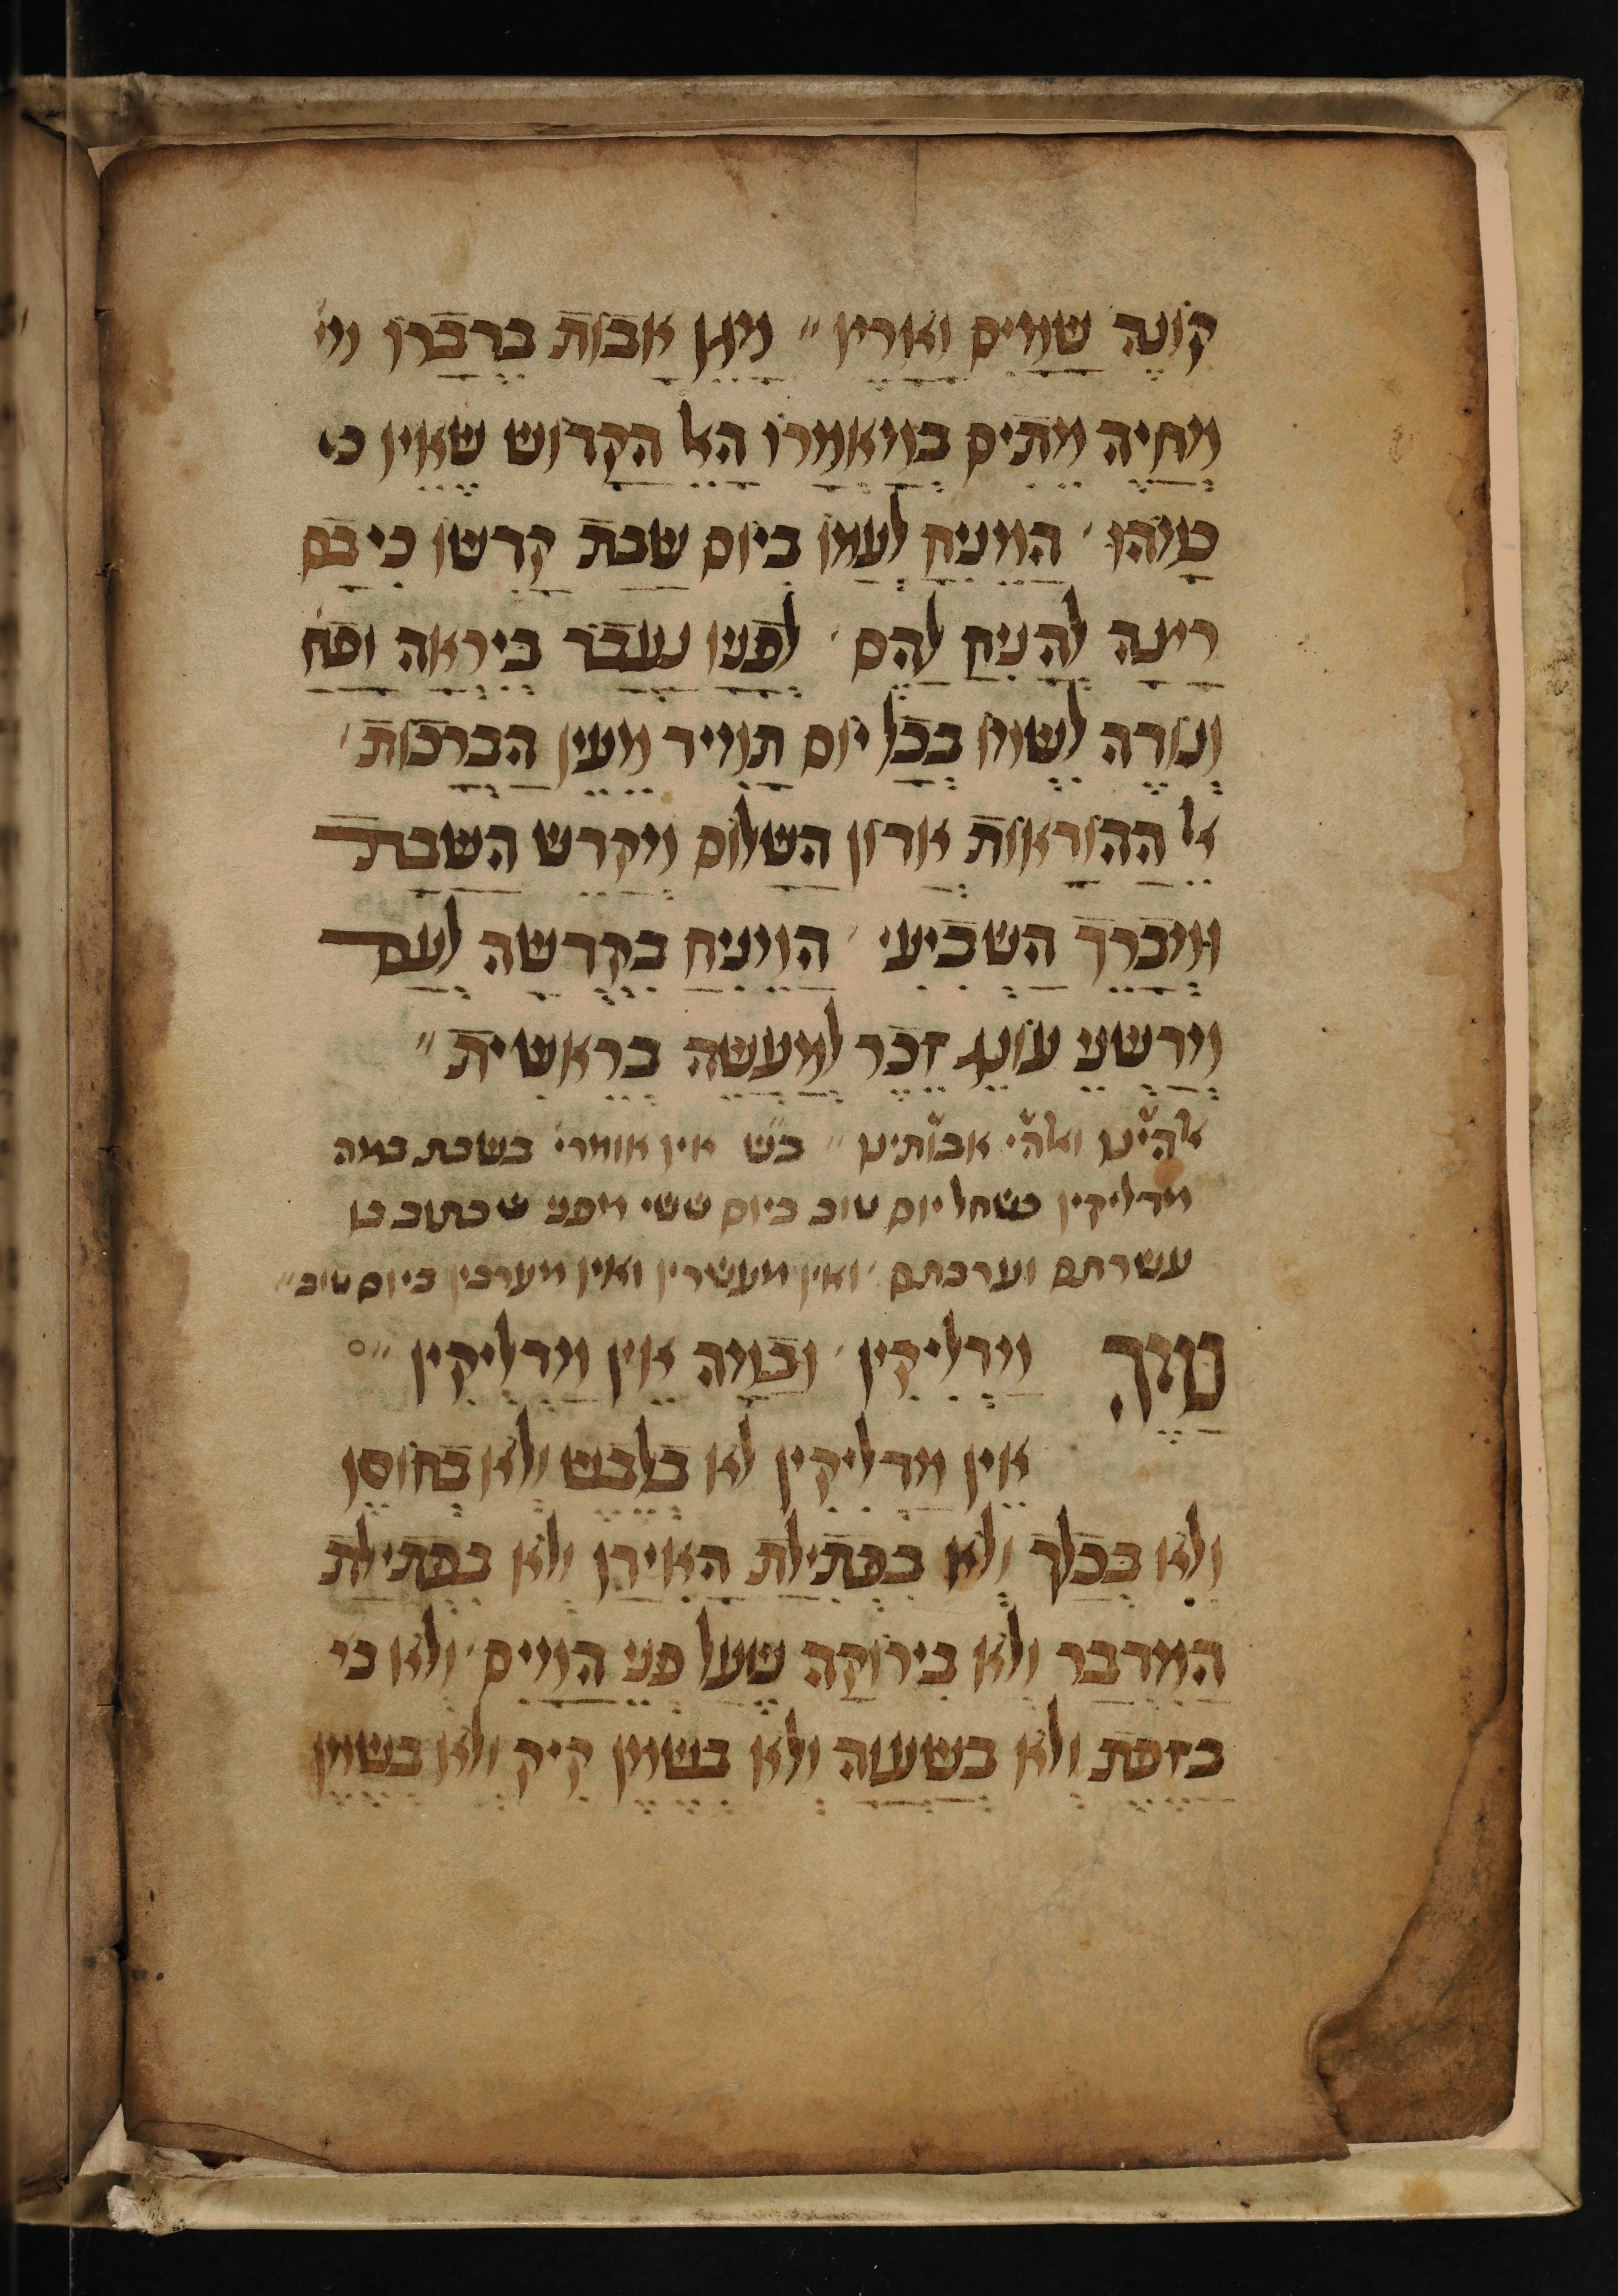 קונה שמים וארץ״ מגן אבות בדברו מי
מחיה מתים במאמרו האל הקדוש שאין כ
כמוהו׳ המניח לעמו ביום שבת קדשו כי בם
רצה להניח להם׳ לפניו נעבד ביראה ופח
ונודה לשמו בכל יום תמיד מעין הברכות׳
אל ההודאות אדון השלום מקדש השבת
ומברך השביעי׳ המניח בקדשה לעם
מדשני עונג זכר למעשה בראשית״
אלהינו ואלהי אבותינו״ בש אין אומרי׳ בשבת במה
מדליקין כשחל יום טוב ביום ששי מפני שכתוב בו
עשרתם וערבתם׳ ואין מעשרין ואין מערבין ביום טוב״
במה מדליקין׳ ובמה אין מדליקין״
אין מדליקין לא בלכש ולא בחוסן
ולא בכלך ולא בפתילת האידן ולא בפתילת
המדבר ולא בירוקה שעל פני המים׳ ולא בי
בזפת ולא בשעוה ולא בשמן קיק ולא בשמן